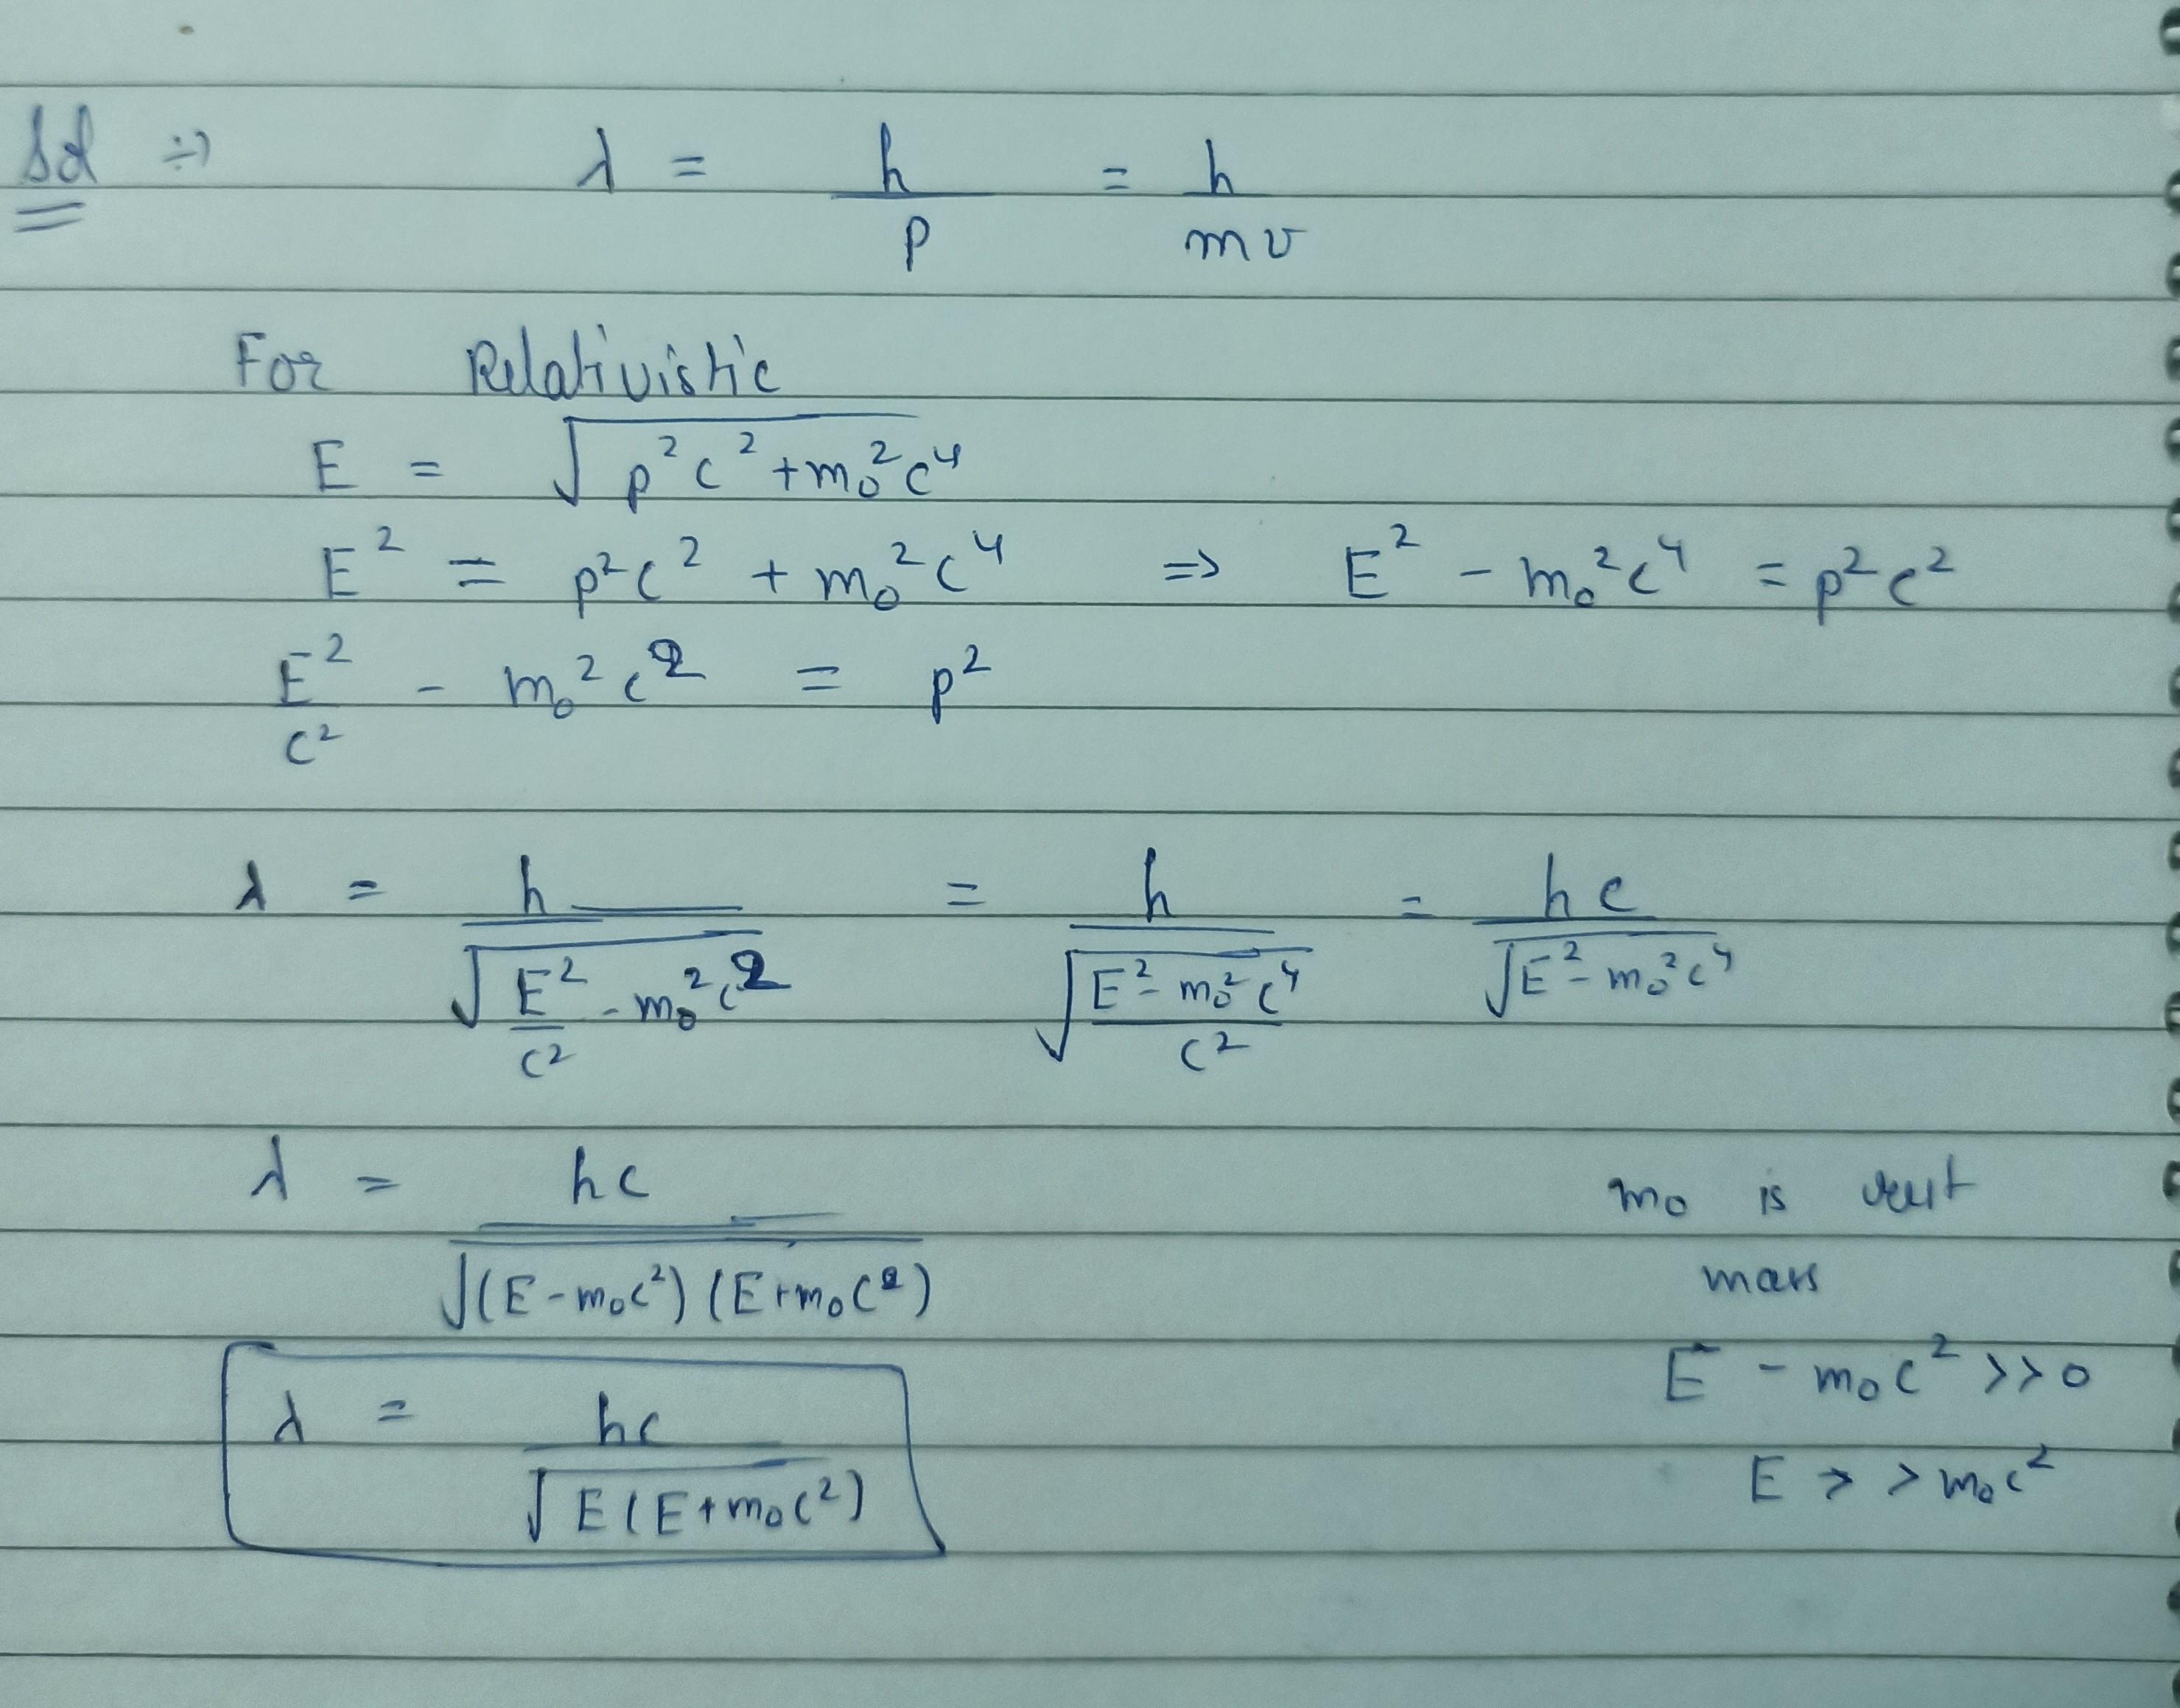 Sol ÷⇒ λ = h/p = h/mv
For Relativistic
E = √(p²c² + m₀²c⁴)
E² = p²c² + m₀²c⁴ ⇒ E² - m₀²c⁴ = p²c²
E²/c² - m₀²c² = p²
λ = h/√(E²/c² - m₀²c²) = h/√((E² - m₀²c⁴)/c²) = hc/√(E² - m₀²c⁴)
λ = hc/√((E - m₀c²)(E + m₀c²))
m₀ is rest
mass
E - m₀c² >> 0
λ = hc/√(E(E + m₀c²))
E >> m₀c²